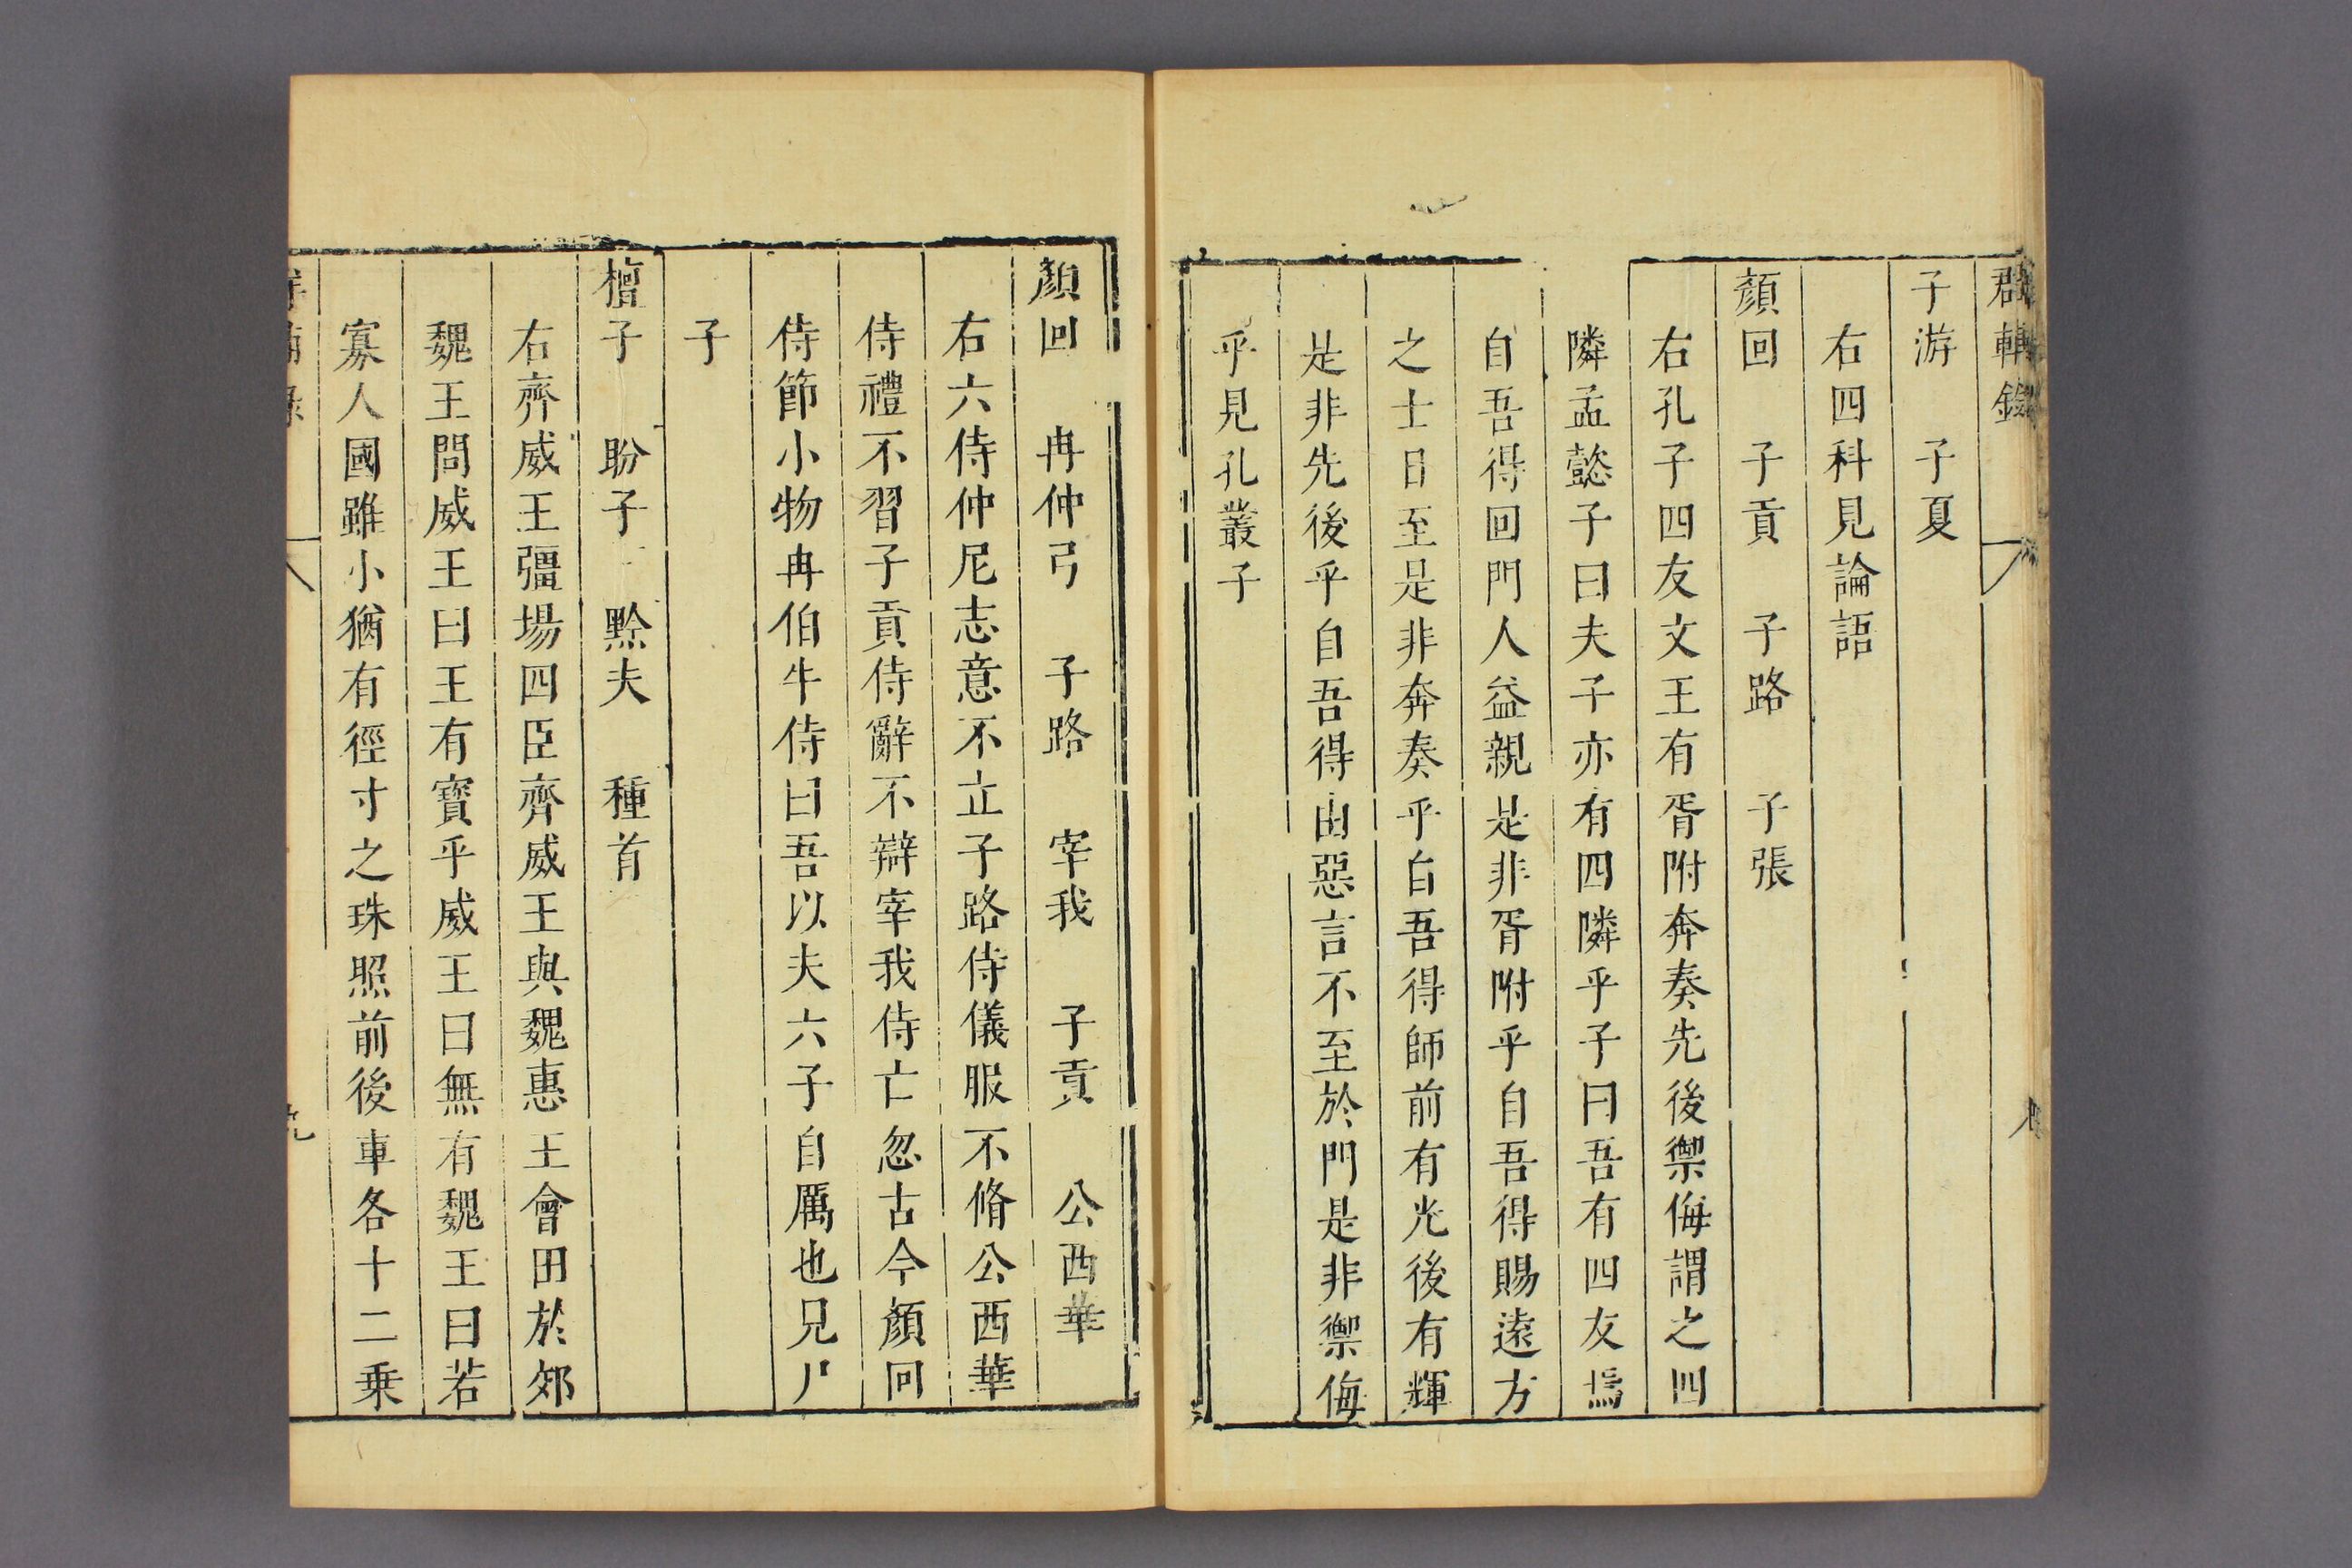 群輔錄
子游　子夏
右四科見論語
顏回　子貢　子路　子張
右孔子四友文王有胥附奔奏先後禦侮謂之四
隣孟懿子曰夫子亦有四隣乎子曰吾有四友焉
自吾得回門人益親是非胥附乎自吾得賜遠方
之士日至是非奔奏乎自吾得師前有光後有輝
是非先後乎自吾得由惡言不至於門是非禦侮
乎見孔叢子
顏回　冉仲弓　子路　宰我　子貢　公西華
右六侍仲尼志意不立子路侍儀服不脩公西華
侍禮不習子貢侍辭不辯宰我侍亡忽古今顏回
侍節小物冉伯牛侍曰吾以夫六子自厲也見尸
子
檀子　盼子　黔夫　種首
右齊威王彊場四臣齊威王與魏惠王會田於郊
魏王問威王曰王有寶乎威王曰無有魏王曰若
寡人國雖小猶有徑寸之珠照前後車各十二乗